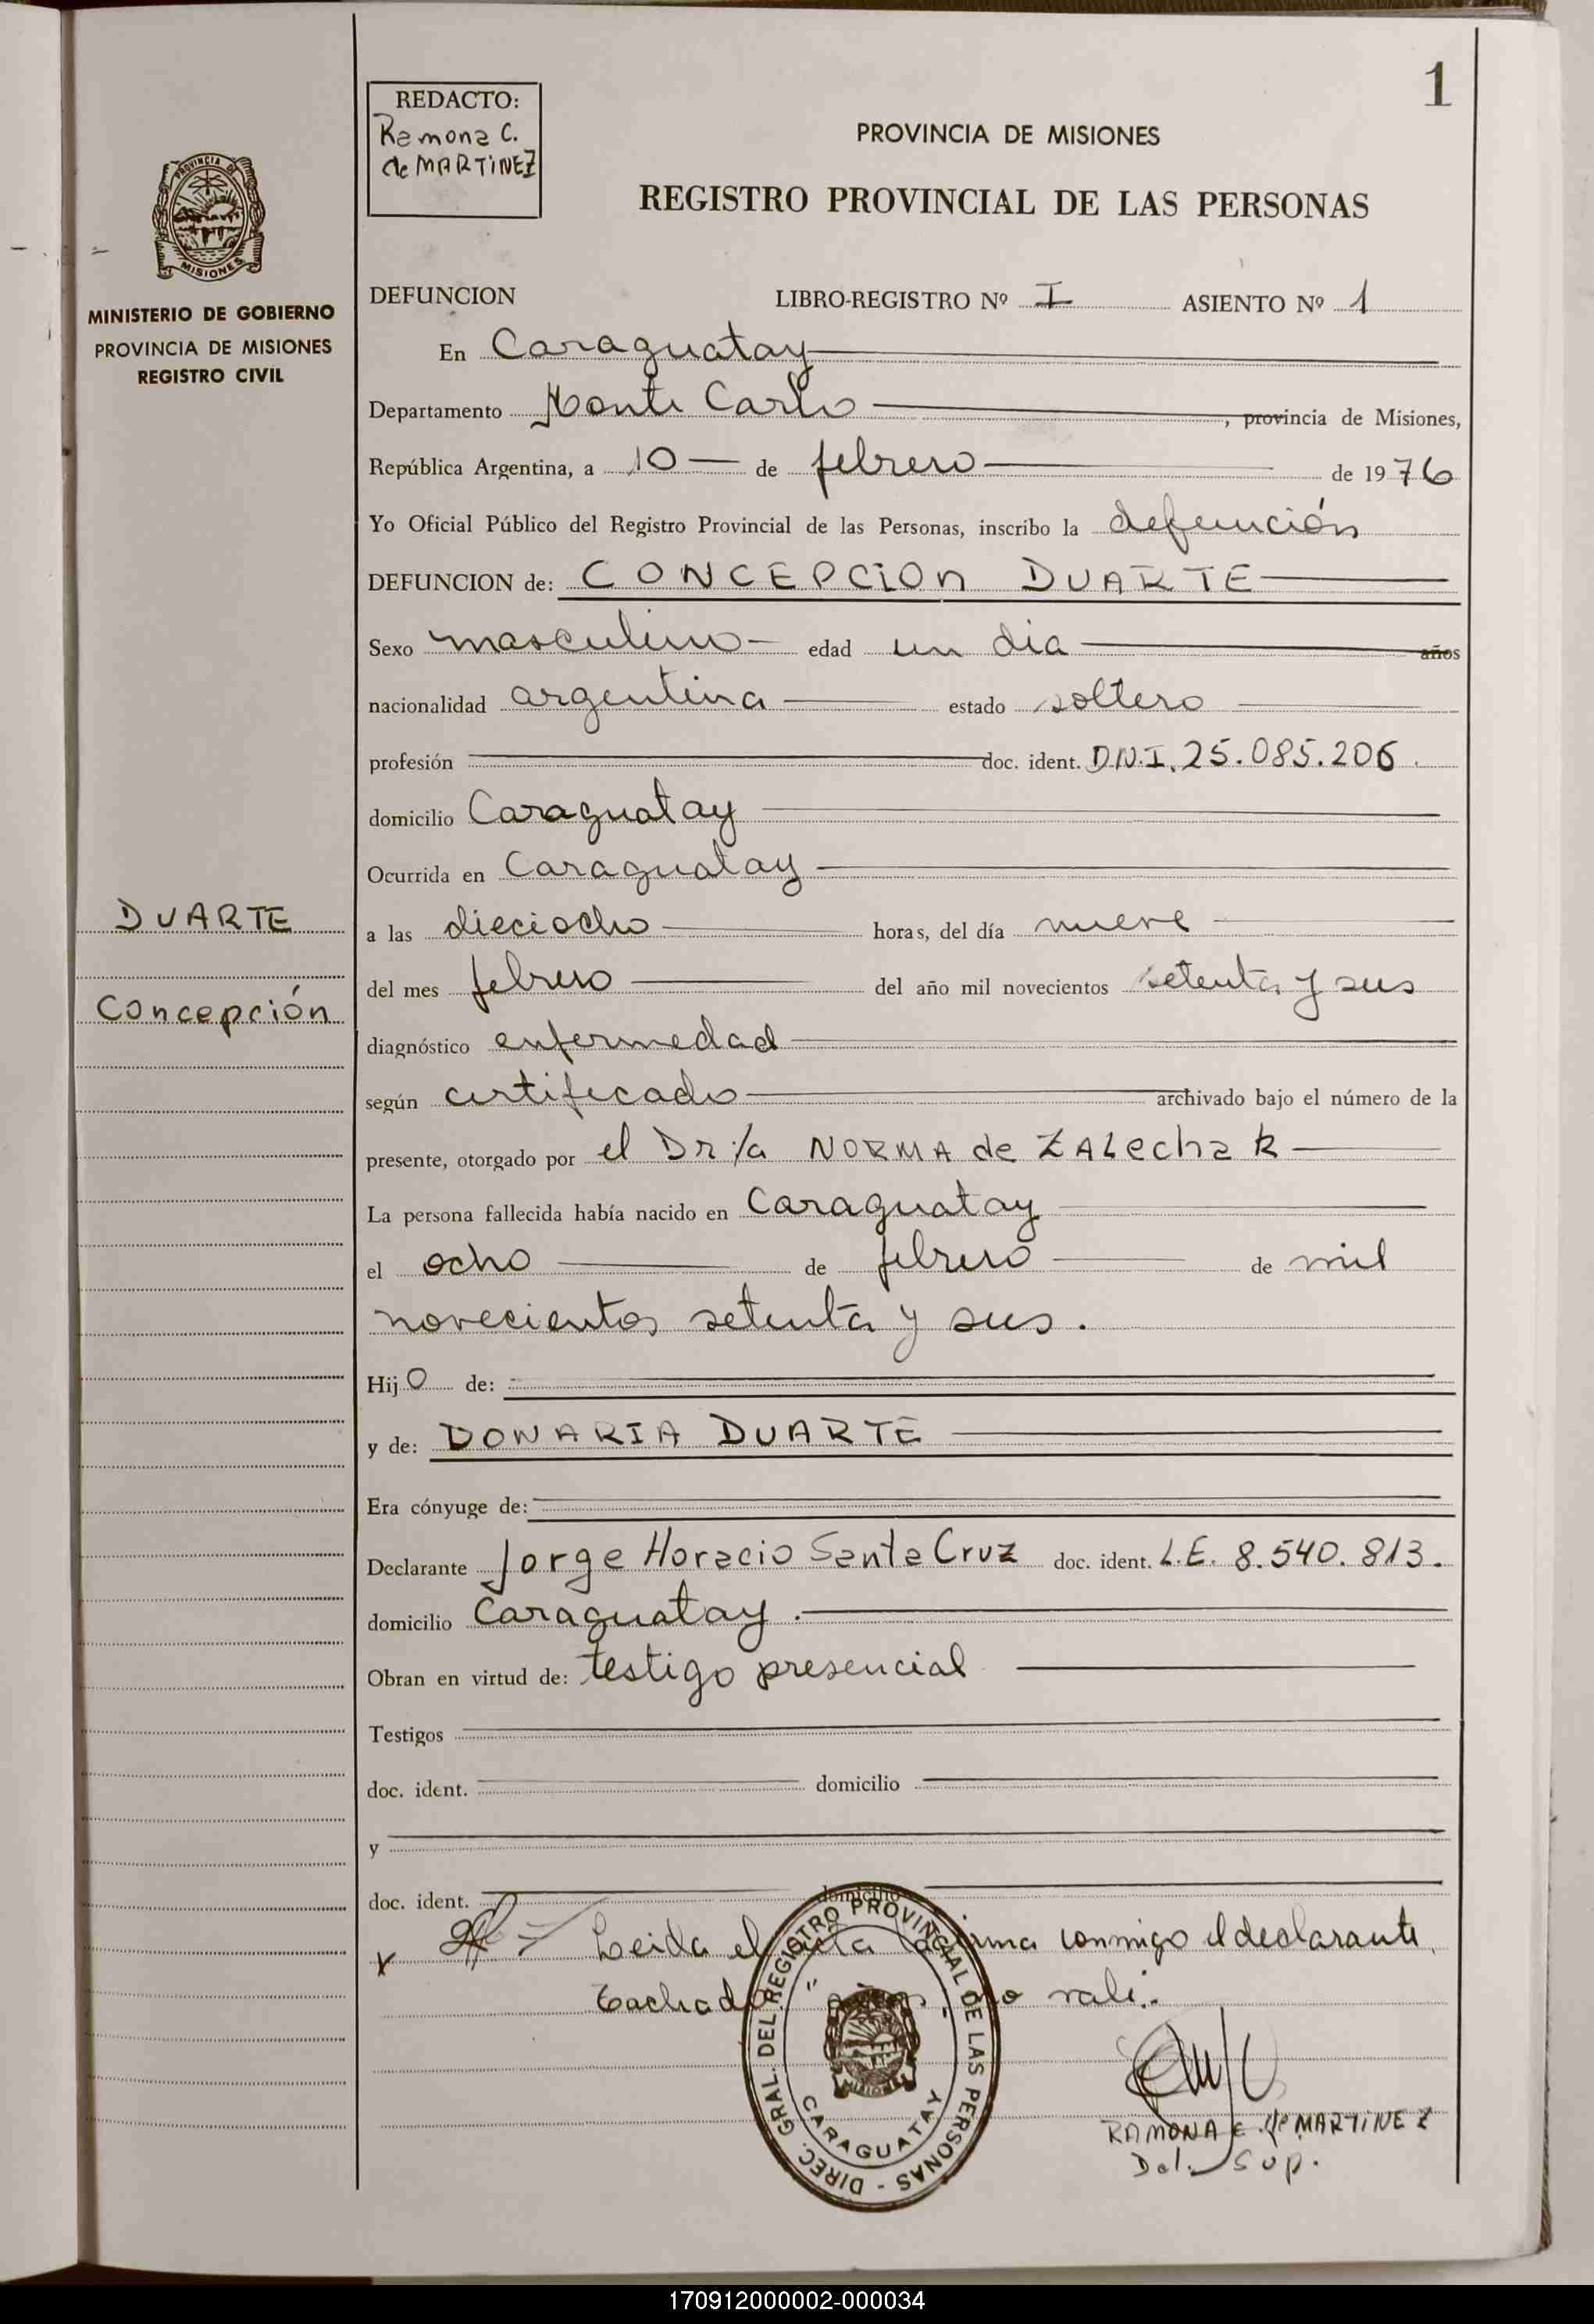 1
REDACTO:
Ramona C.
de MARTINEZ
PROVINCIA DE MISIONES
REGISTRO PROVINCIAL DE LAS PERSONAS
PROVINCIA DE
MISIONES
MINISTERIO DE GOBIERNO
PROVINCIA DE MISIONES
REGISTRO CIVIL
DEFUNCION LIBRO-REGISTRO Nº I ASIENTO Nº 1
En Caraguatay
Departamento Monte Carlo, provincia de Misiones,
República Argentina, a 10 de febrero de 1976
Yo Oficial Público del Registro Provincial de las Personas, inscribo la defunción
DEFUNCION de: CONCEPCION DUARTE
Sexo masculino edad un dia años
nacionalidad argentina estado soltero
profesión doc. ident. D.N.I. 25.085.206.
domicilio Caraguatay
Ocurrida en Caraguatay
DUARTE
Concepción
a las dieciocho horas, del día nueve
del mes febrero del año mil novecientos setenta y seis
diagnóstico enfermedad
según certificado archivado bajo el número de la
presente, otorgado por el Dr/a NORMA de ZALechak
La persona fallecida había nacido en Caraguatay
el ocho de febrero de mil
novecientos setenta y seis.
Hijo de:
y de: DONARIA DUARTE
Era cónyuge de:
Declarante Jorge Horacio Santa Cruz doc. ident. L.E. 8.540.813.
domicilio Caraguatay.
Obran en virtud de: testigo presencial
Testigos
doc. ident. domicilio
y
doc. ident. domicilio
Leida el acta la firma conmigo el declarante.
Tachado "años" no vale.
DIREC. GRAL. DEL REGISTRO PROVINCIAL DE LAS PERSONAS -
MISIONES
CARAGUATAY
RAMONA C. de MARTINEZ
Del. Sup.
170912000002-000034